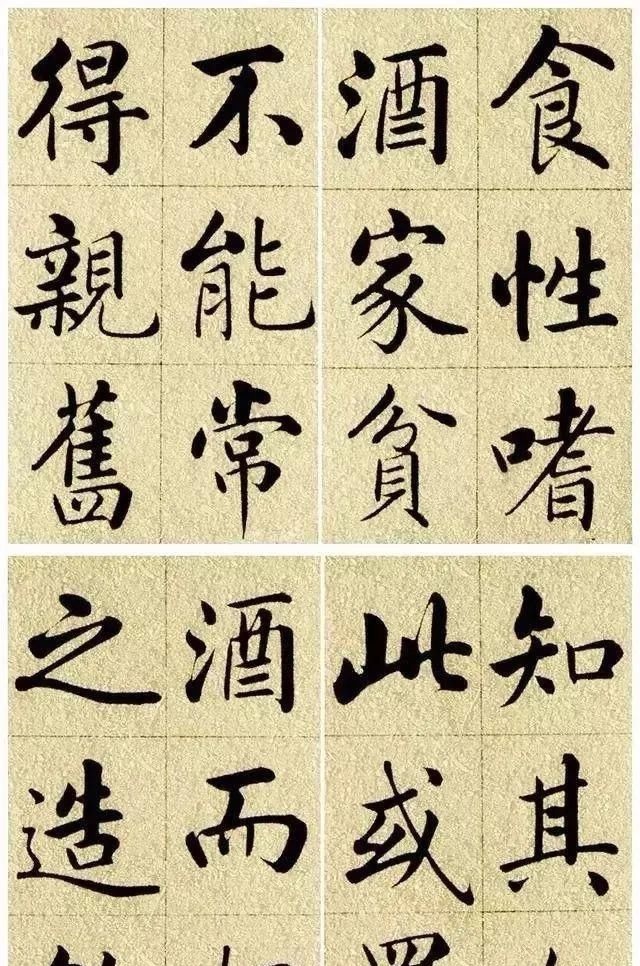 食性嗜
酒家貧
不能常
得親舊
知其
此或
酒而
之造